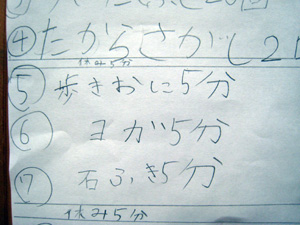 ④たからさがし2
休み5分
⑤歩きおに5分
⑥ヨガ5分
⑦石ふき5分
休み5分